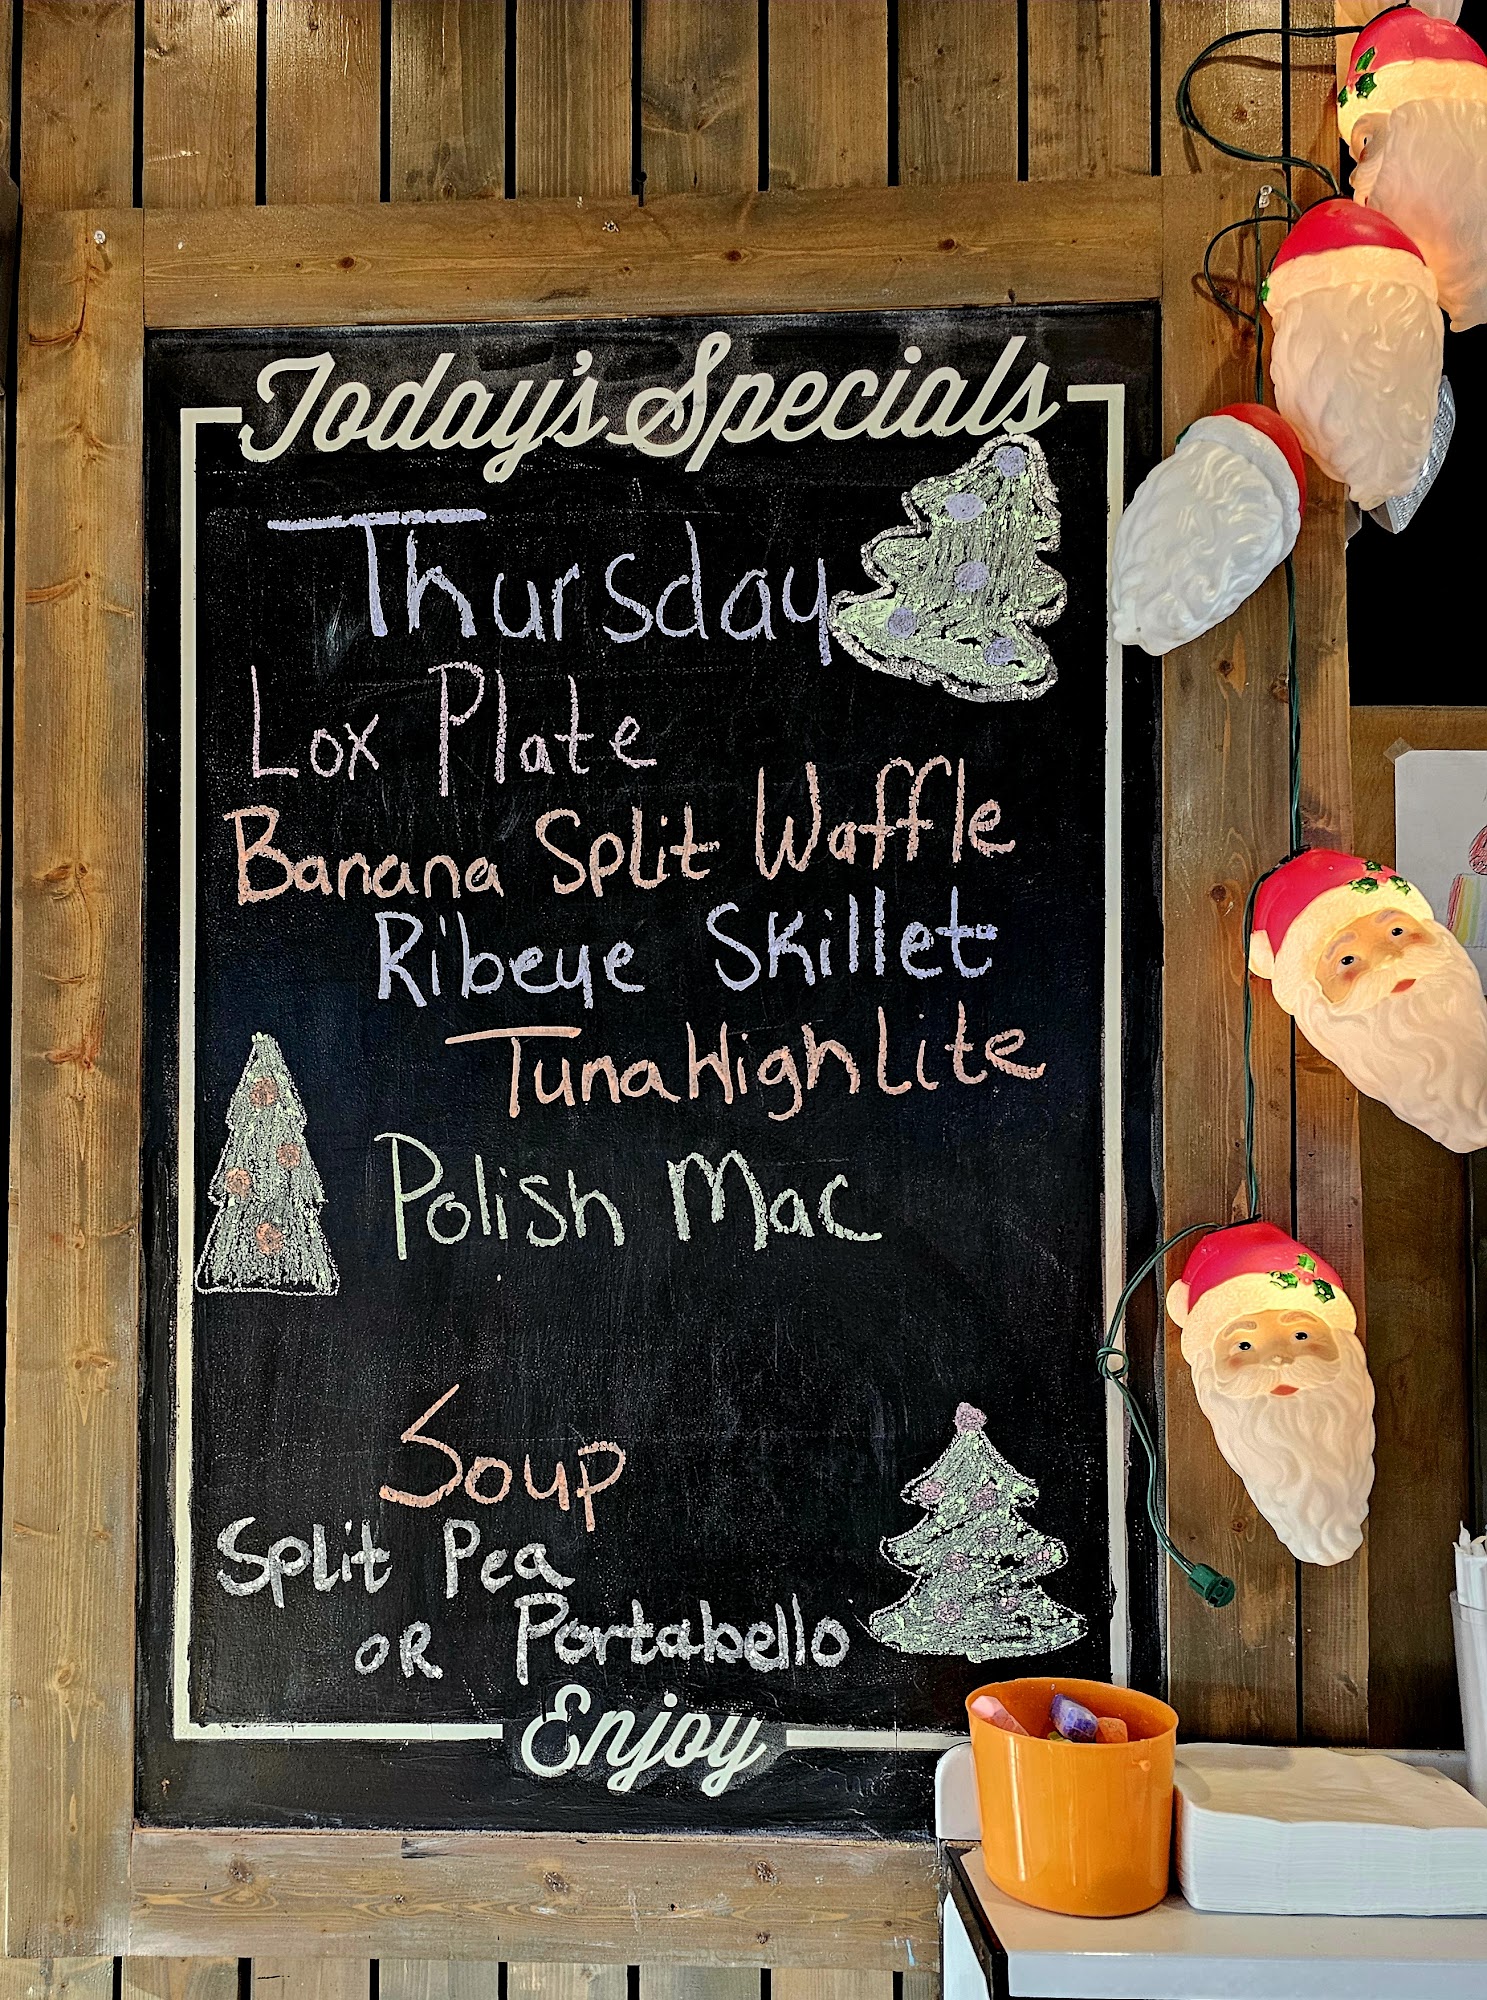 Today's Specials
Thursday
Lox Plate
Banana Split Waffle
Ribeye Skillet
Tuna High Lite
Polish Mac
Soup
Split Pea
OR Portabello
Enjoy